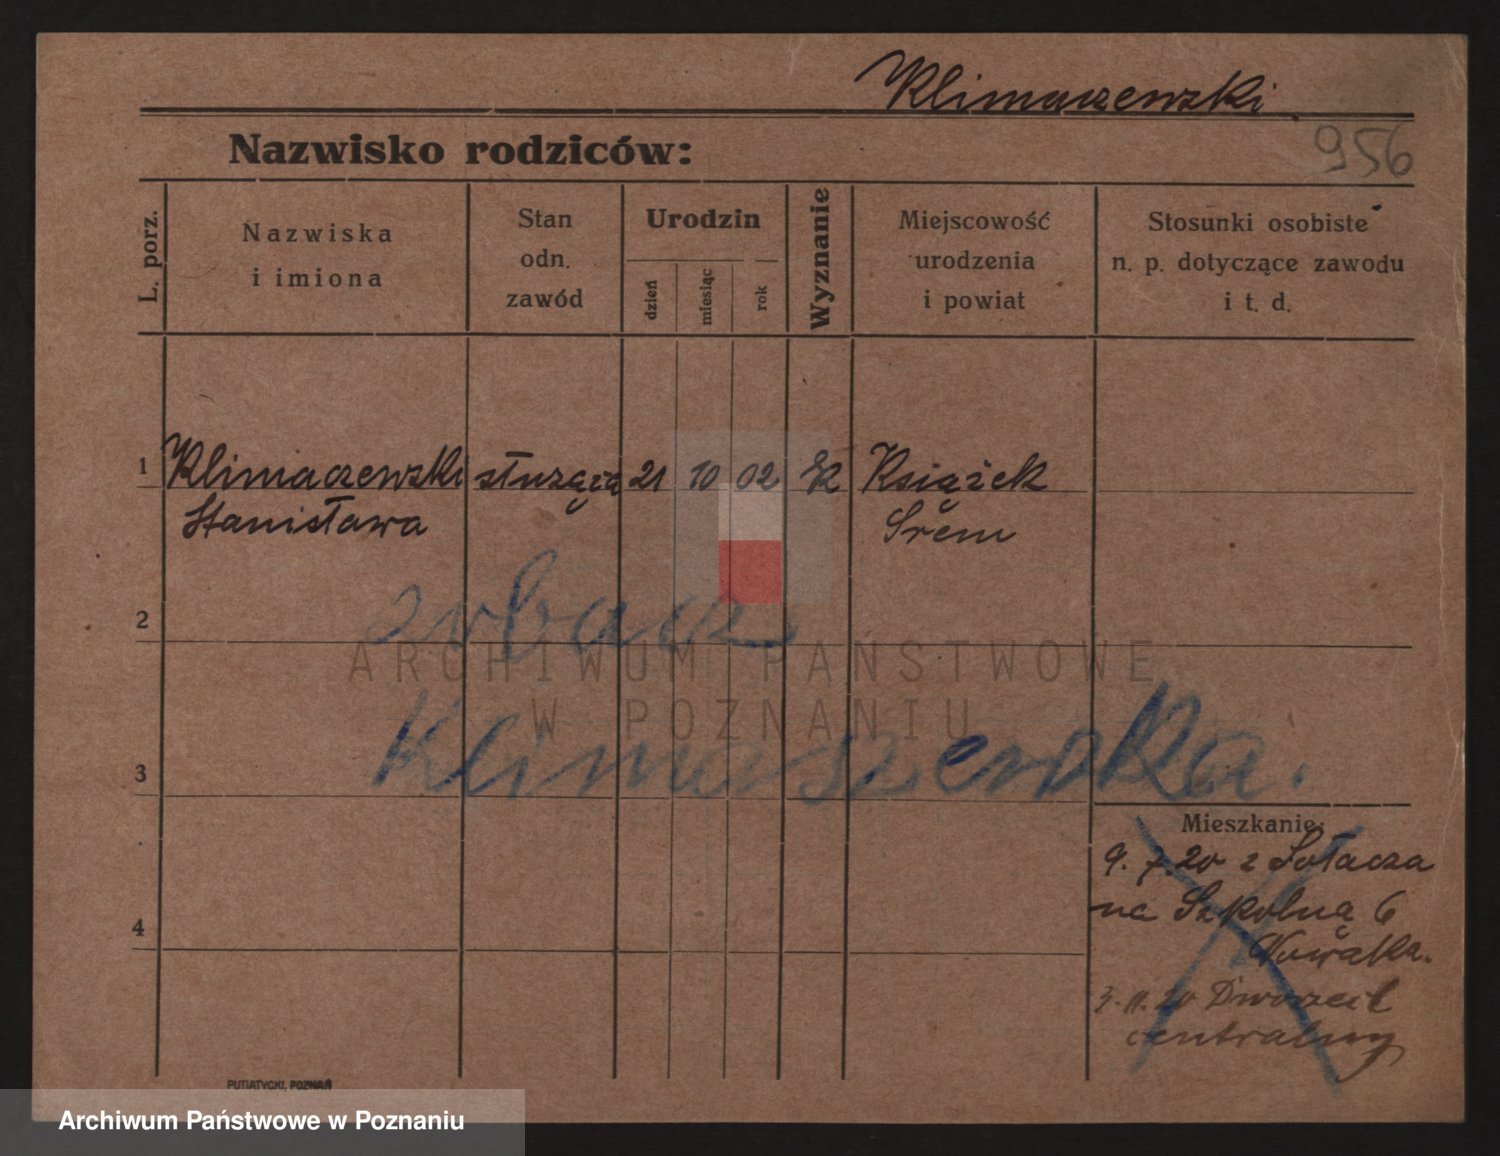 Klimaczewski
956
Nazwisko rodziców:
L. porz.
Nazwiska
i imiona
Stan
odn.
zawód
Urodzin
dzień
miesiąc
rok
Wyznanie
Miejscowość
urodzenia
i powiat
Stosunki osobiste
n. p. dotyczące zawodu
i t. d.
1 Klimaczewski służąca 21 10 02 k Książek
Stanisława Srem
2 zobacz
ARCHIWUM PAŃSTWOWE
W POZNANIU
3 Klimaszewska.
Mieszkanie:
9.7.20 z Sołacza
na Szkolną 6
Nowaka.
4
3.11.20 Dworzec
centralny
PUTIATYCKI, POZNAŃ
Archiwum Państwowe w Poznaniu